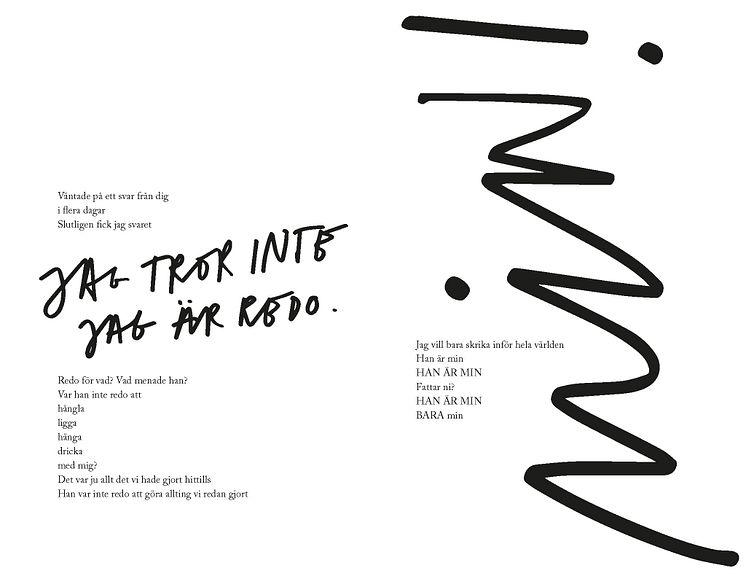 Väntade på ett svar från dig
i flera dagar
Slutligen fick jag svaret
JAG TROR INTE
JAG ÄR REDO.
Redo för vad? Vad menade han?
Var han inte redo att
hångla
ligga
hänga
dricka
med mig?
Det var ju allt det vi hade gjort hittills
Han var inte redo att göra allting vi redan gjort
min!
Jag vill bara skrika inför hela världen
Han är min
HAN ÄR MIN
Fattar ni?
HAN ÄR MIN
BARA min